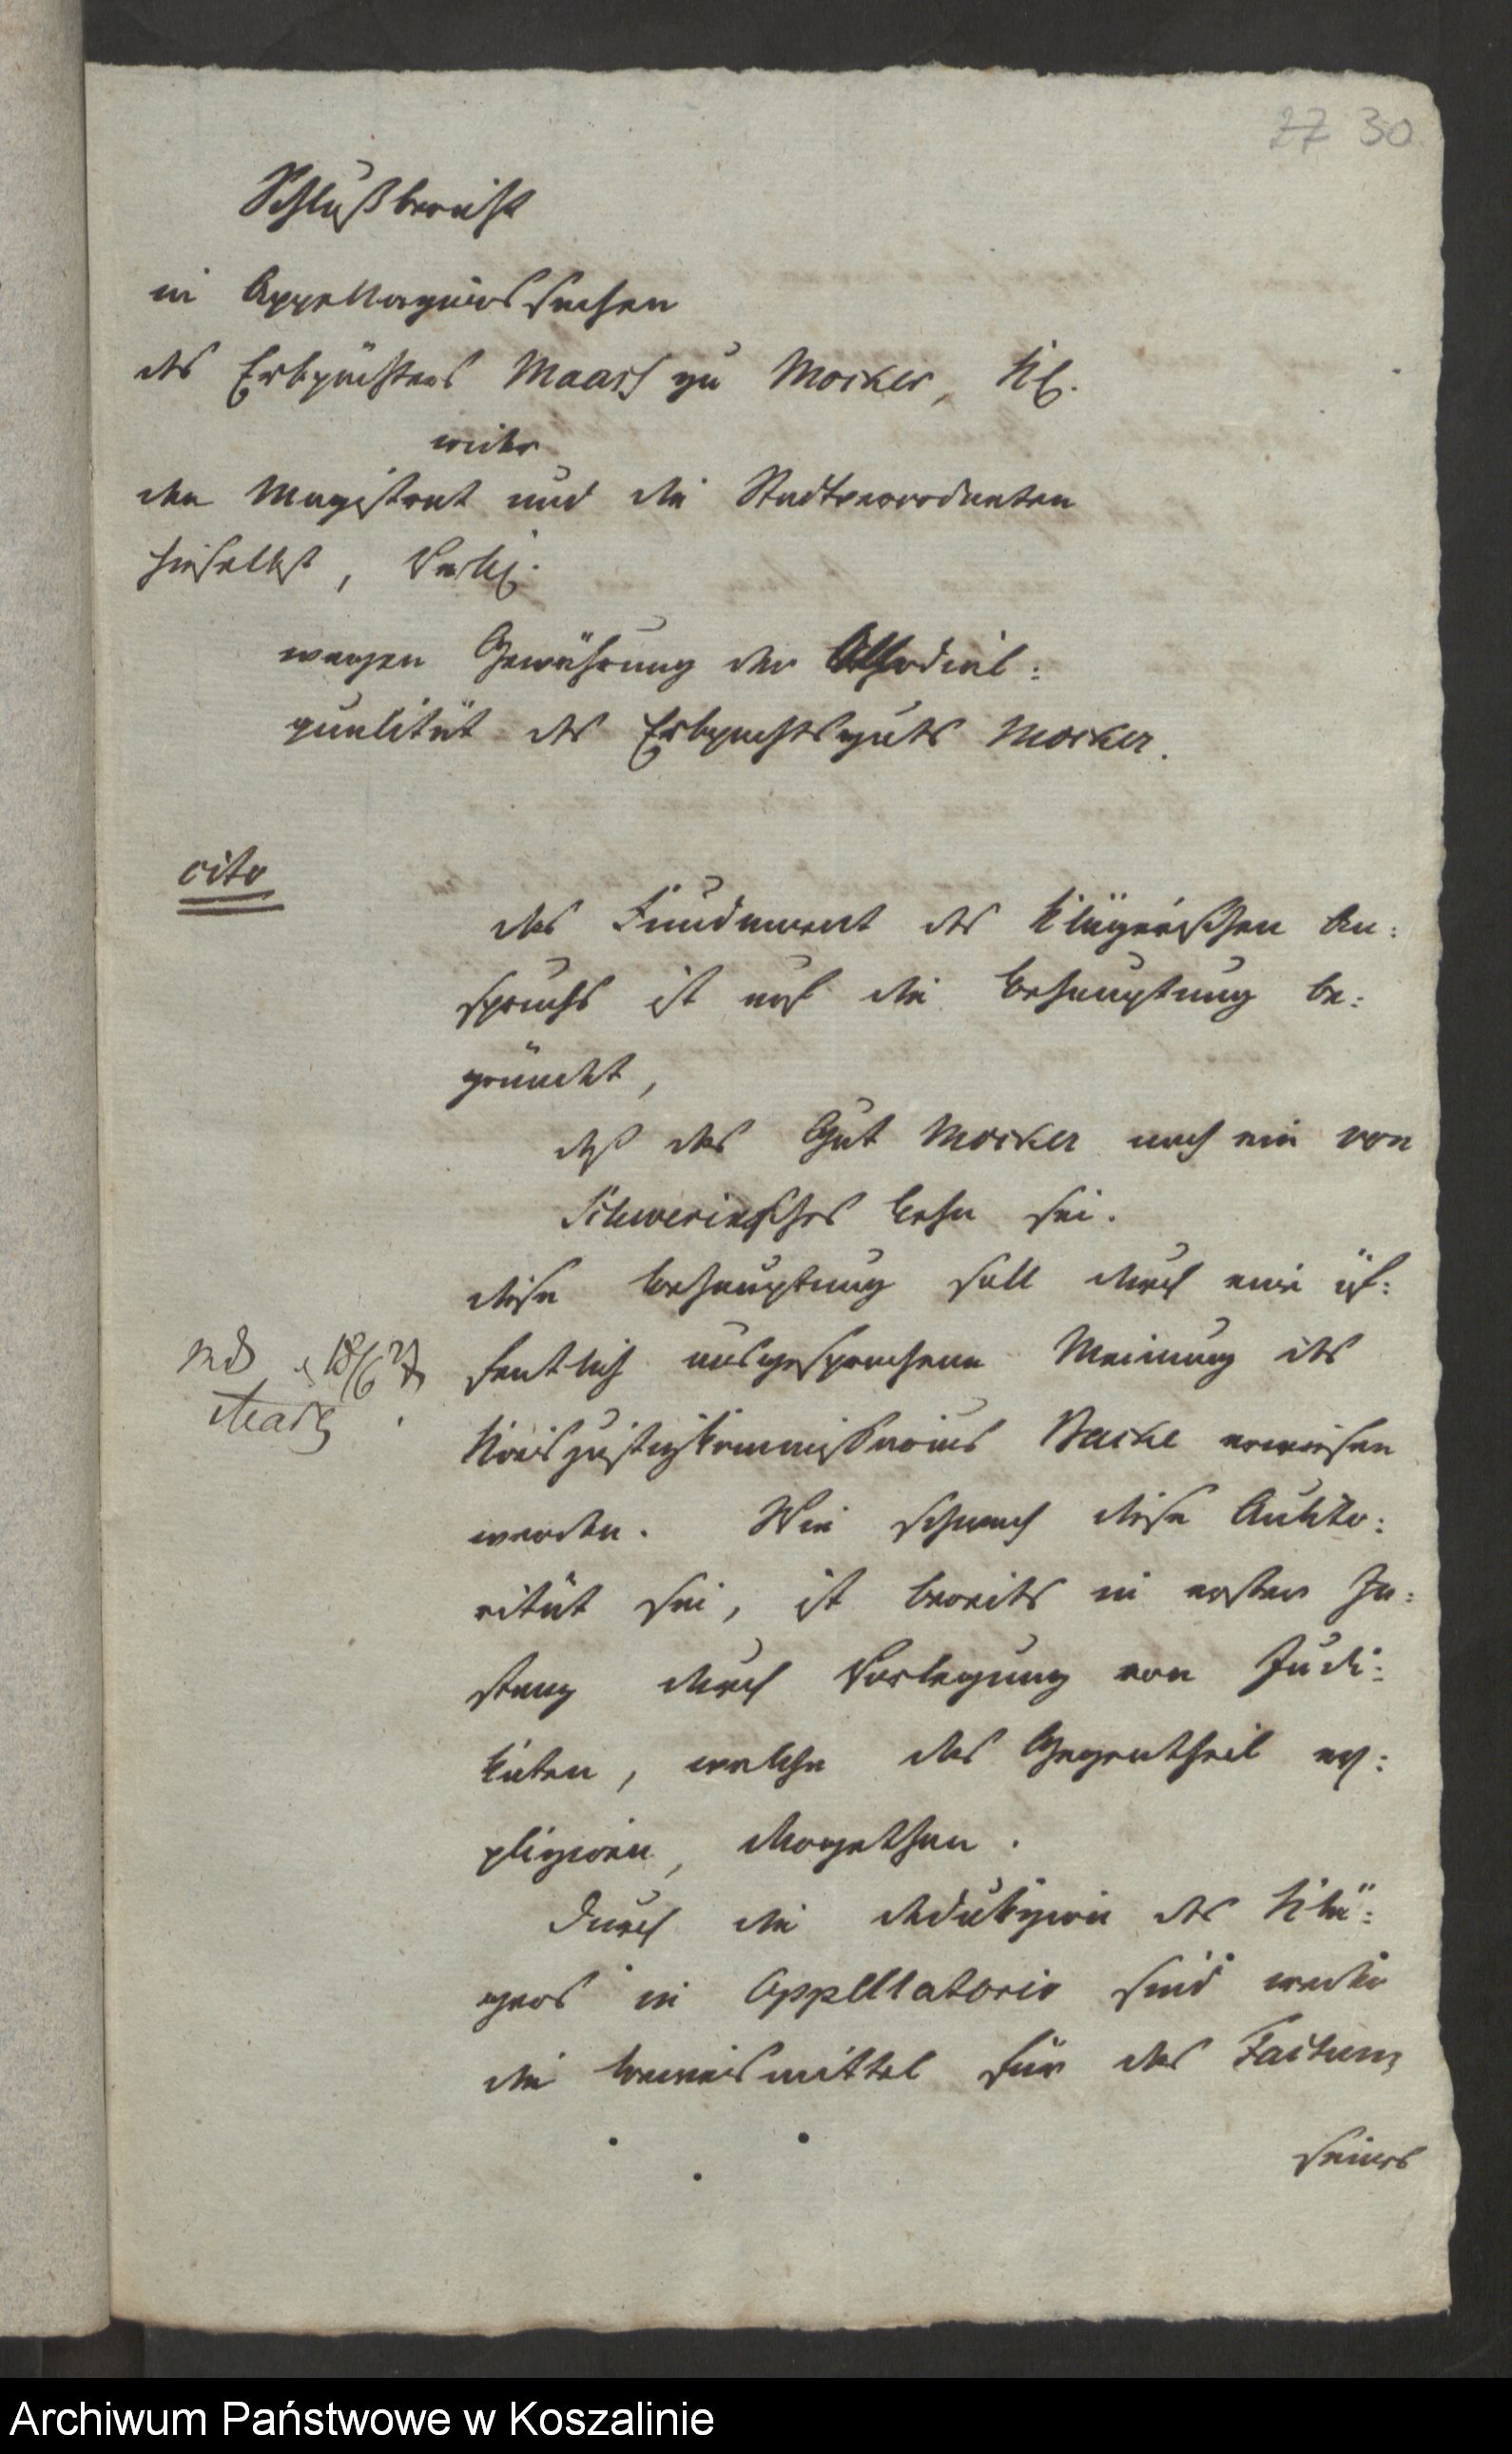 27 30
Schlußbericht
in Appellazionssachen
des Erbpächters Maass zu Mocker, Kl.
wider
den Magistrat und die Stadtverordneten
hieselbst, Verkl.
wegen Gewährung der Allodial:
qualität des Erbpachtsguts Mocker.
cito
Das Fundament des klägerischen An:
spruchs ist auf die Behauptung be:
gründet,
daß das Gut Mocker noch ein von
Schwerinsches Lehn sei.
Diese Behauptung soll durch eine öf:
18/6 27
fentlich ausgesprochene Meinung des
Kreisjustizkommissarius Backe erwiesen
werden. Wie schwach diese Aukto:
rität sei, ist bereits in erster In:
stanz durch Vorlegung von Judi:
katen, welche das Gegentheil ex:
pliziren, dargethan.
Durch die Dedukzion des Klä:
gers in Appellatorio sind weder
die Beweismittel für das Factum
seines
Archiwum Państwowe w Koszalinie